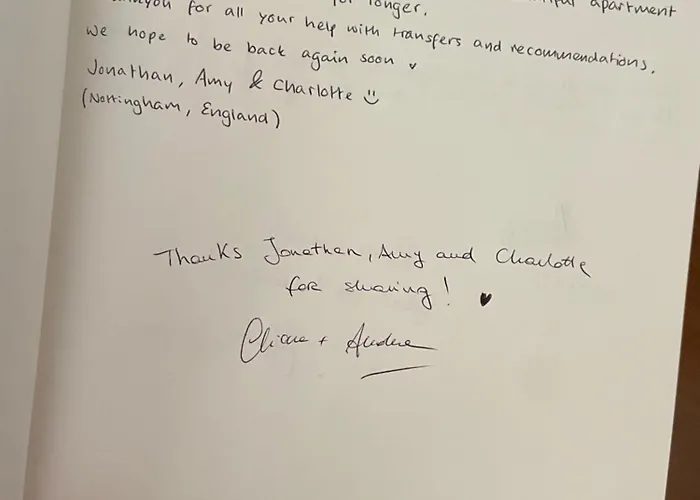 longer.
apartment
for all your help with transfers and recommendations.
We hope to be back again soon
Jonathan, Amy & Charlotte
(Nottingham, England)
Thanks Jonathan, Amy and Charlotte
for sharing! ♥
+